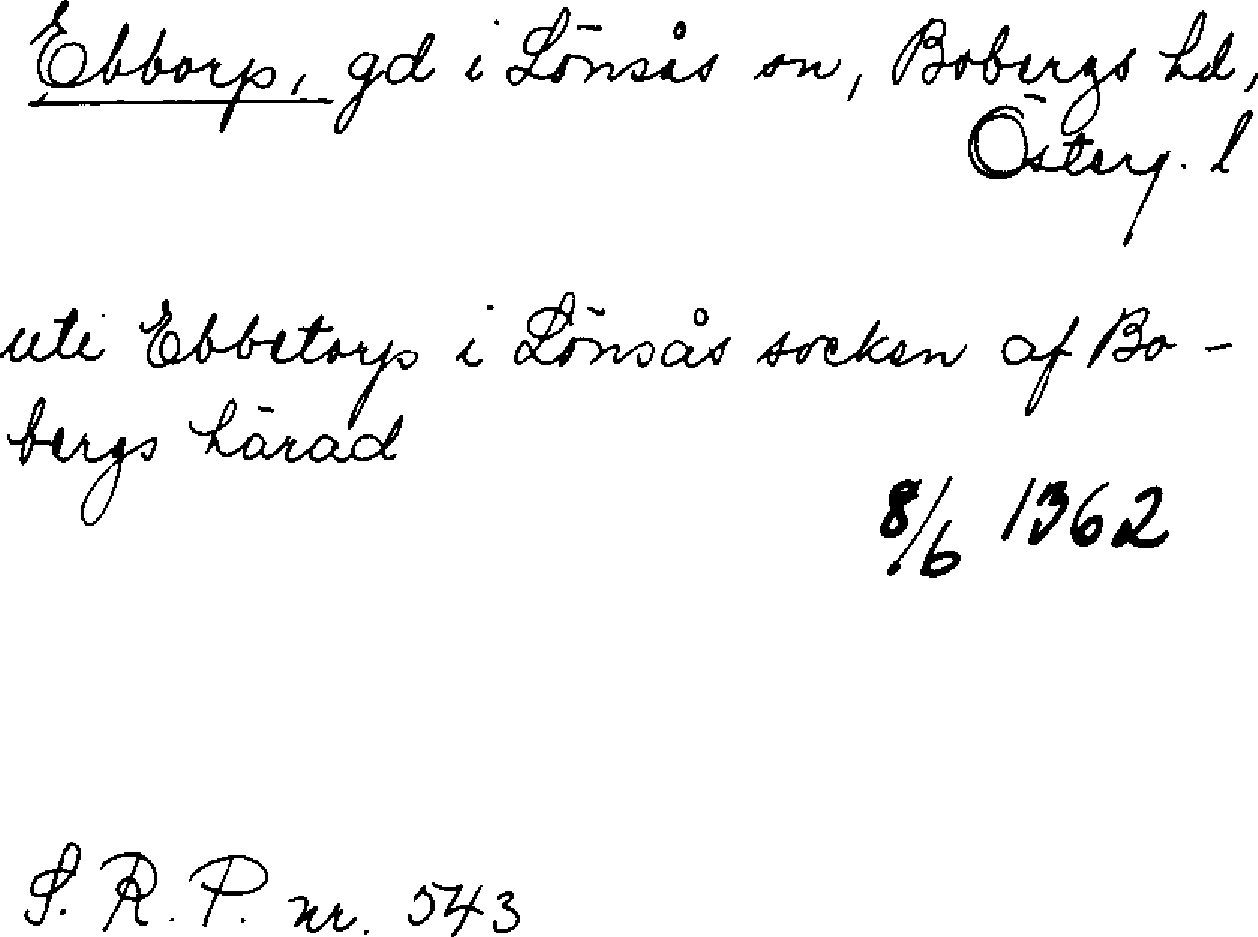 Ebborp, gd i Lönsås sn, Bobergs hd,
Österg. l
uti Ebbetorp i Lönsås socken af Bo-
bergs härad
8/6 1362
S. R. P. nr. 543